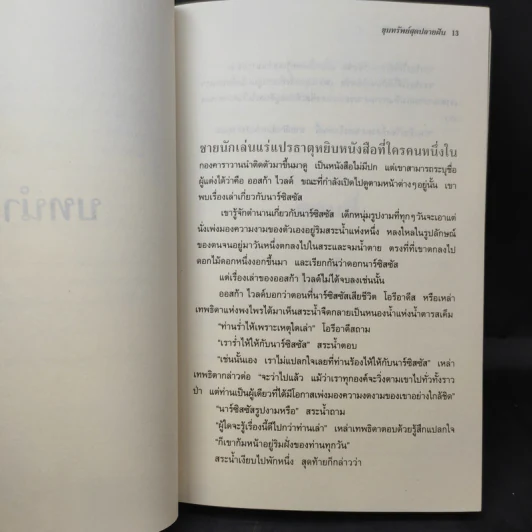 ขุมทรัพย์สุดปลายฝัน 13
ชายนักเล่นแร่แปรธาตุหยิบหนังสือที่ใครคนหนึ่งใน
กองคาราวานนำติดตัวมาขึ้นมาดู เป็นหนังสือไม่มีปก แต่เขาสามารถระบุชื่อ
ผู้แต่งได้ว่าคือ ออสก้า ไวลด์ ขณะที่กำลังเปิดไปดูตามหน้าต่างๆอยู่นั้น เขา
พบเรื่องเล่าเกี่ยวกับนาร์ซิสซัส
เขารู้จักตำนานเกี่ยวกับนาร์ซิสซัส เด็กหนุ่มรูปงามที่ทุกๆวันจะเอาแต่
นั่งเพ่งมองความงามของตัวเองอยู่ริมสระน้ำแห่งหนึ่ง หลงใหลในรูปลักษณ์
ของตนจนอยู่มาวันหนึ่งตกลงไปในสระและจมน้ำตาย ตรงที่ที่เขาตกลงไป
ดอกไม้ดอกหนึ่งงอกขึ้นมา และเรียกกันว่าดอกนาร์ซิสซัส
แต่เรื่องเล่าของออสก้า ไวลด์ไม่ได้จบลงเช่นนั้น
ออสก้า ไวลด์บอกว่าตอนที่นาร์ซิสซัสเสียชีวิต โอรีอาดีส หรือเหล่า
เทพธิดาแห่งพงไพรได้มาเห็นสระน้ำจืดกลายเป็นหนองน้ำแห่งน้ำตารสเค็ม
“ท่านร่ำไห้เพราะเหตุใดเล่า” โอรีอาดีสถาม
“เราร่ำไห้ให้กับนาร์ซิสซัส” สระน้ำตอบ
“เช่นนั้นเอง เราไม่แปลกใจเลยที่ท่านร้องไห้ให้กับนาร์ซิสซัส” เหล่า
เทพธิดากล่าวต่อ “จะว่าไปแล้ว แม้ว่าเราทุกองค์จะวิ่งตามเขาไปทั่วทั้งราว
ป่า แต่ท่านเป็นผู้เดียวที่ได้มีโอกาสเพ่งมองความงดงามของเขาอย่างใกล้ชิด”
“นาร์ซิสซัสรูปงามหรือ” สระน้ำถาม
“ผู้ใดจะรู้เรื่องนี้ดีไปกว่าท่านเล่า” เหล่าเทพธิดาตอบด้วยรู้สึกแปลกใจ
“ก็เขาก้มหน้าอยู่ริมฝั่งของท่านทุกวัน”
สระน้ำเงียบไปพักหนึ่ง สุดท้ายก็กล่าวว่า